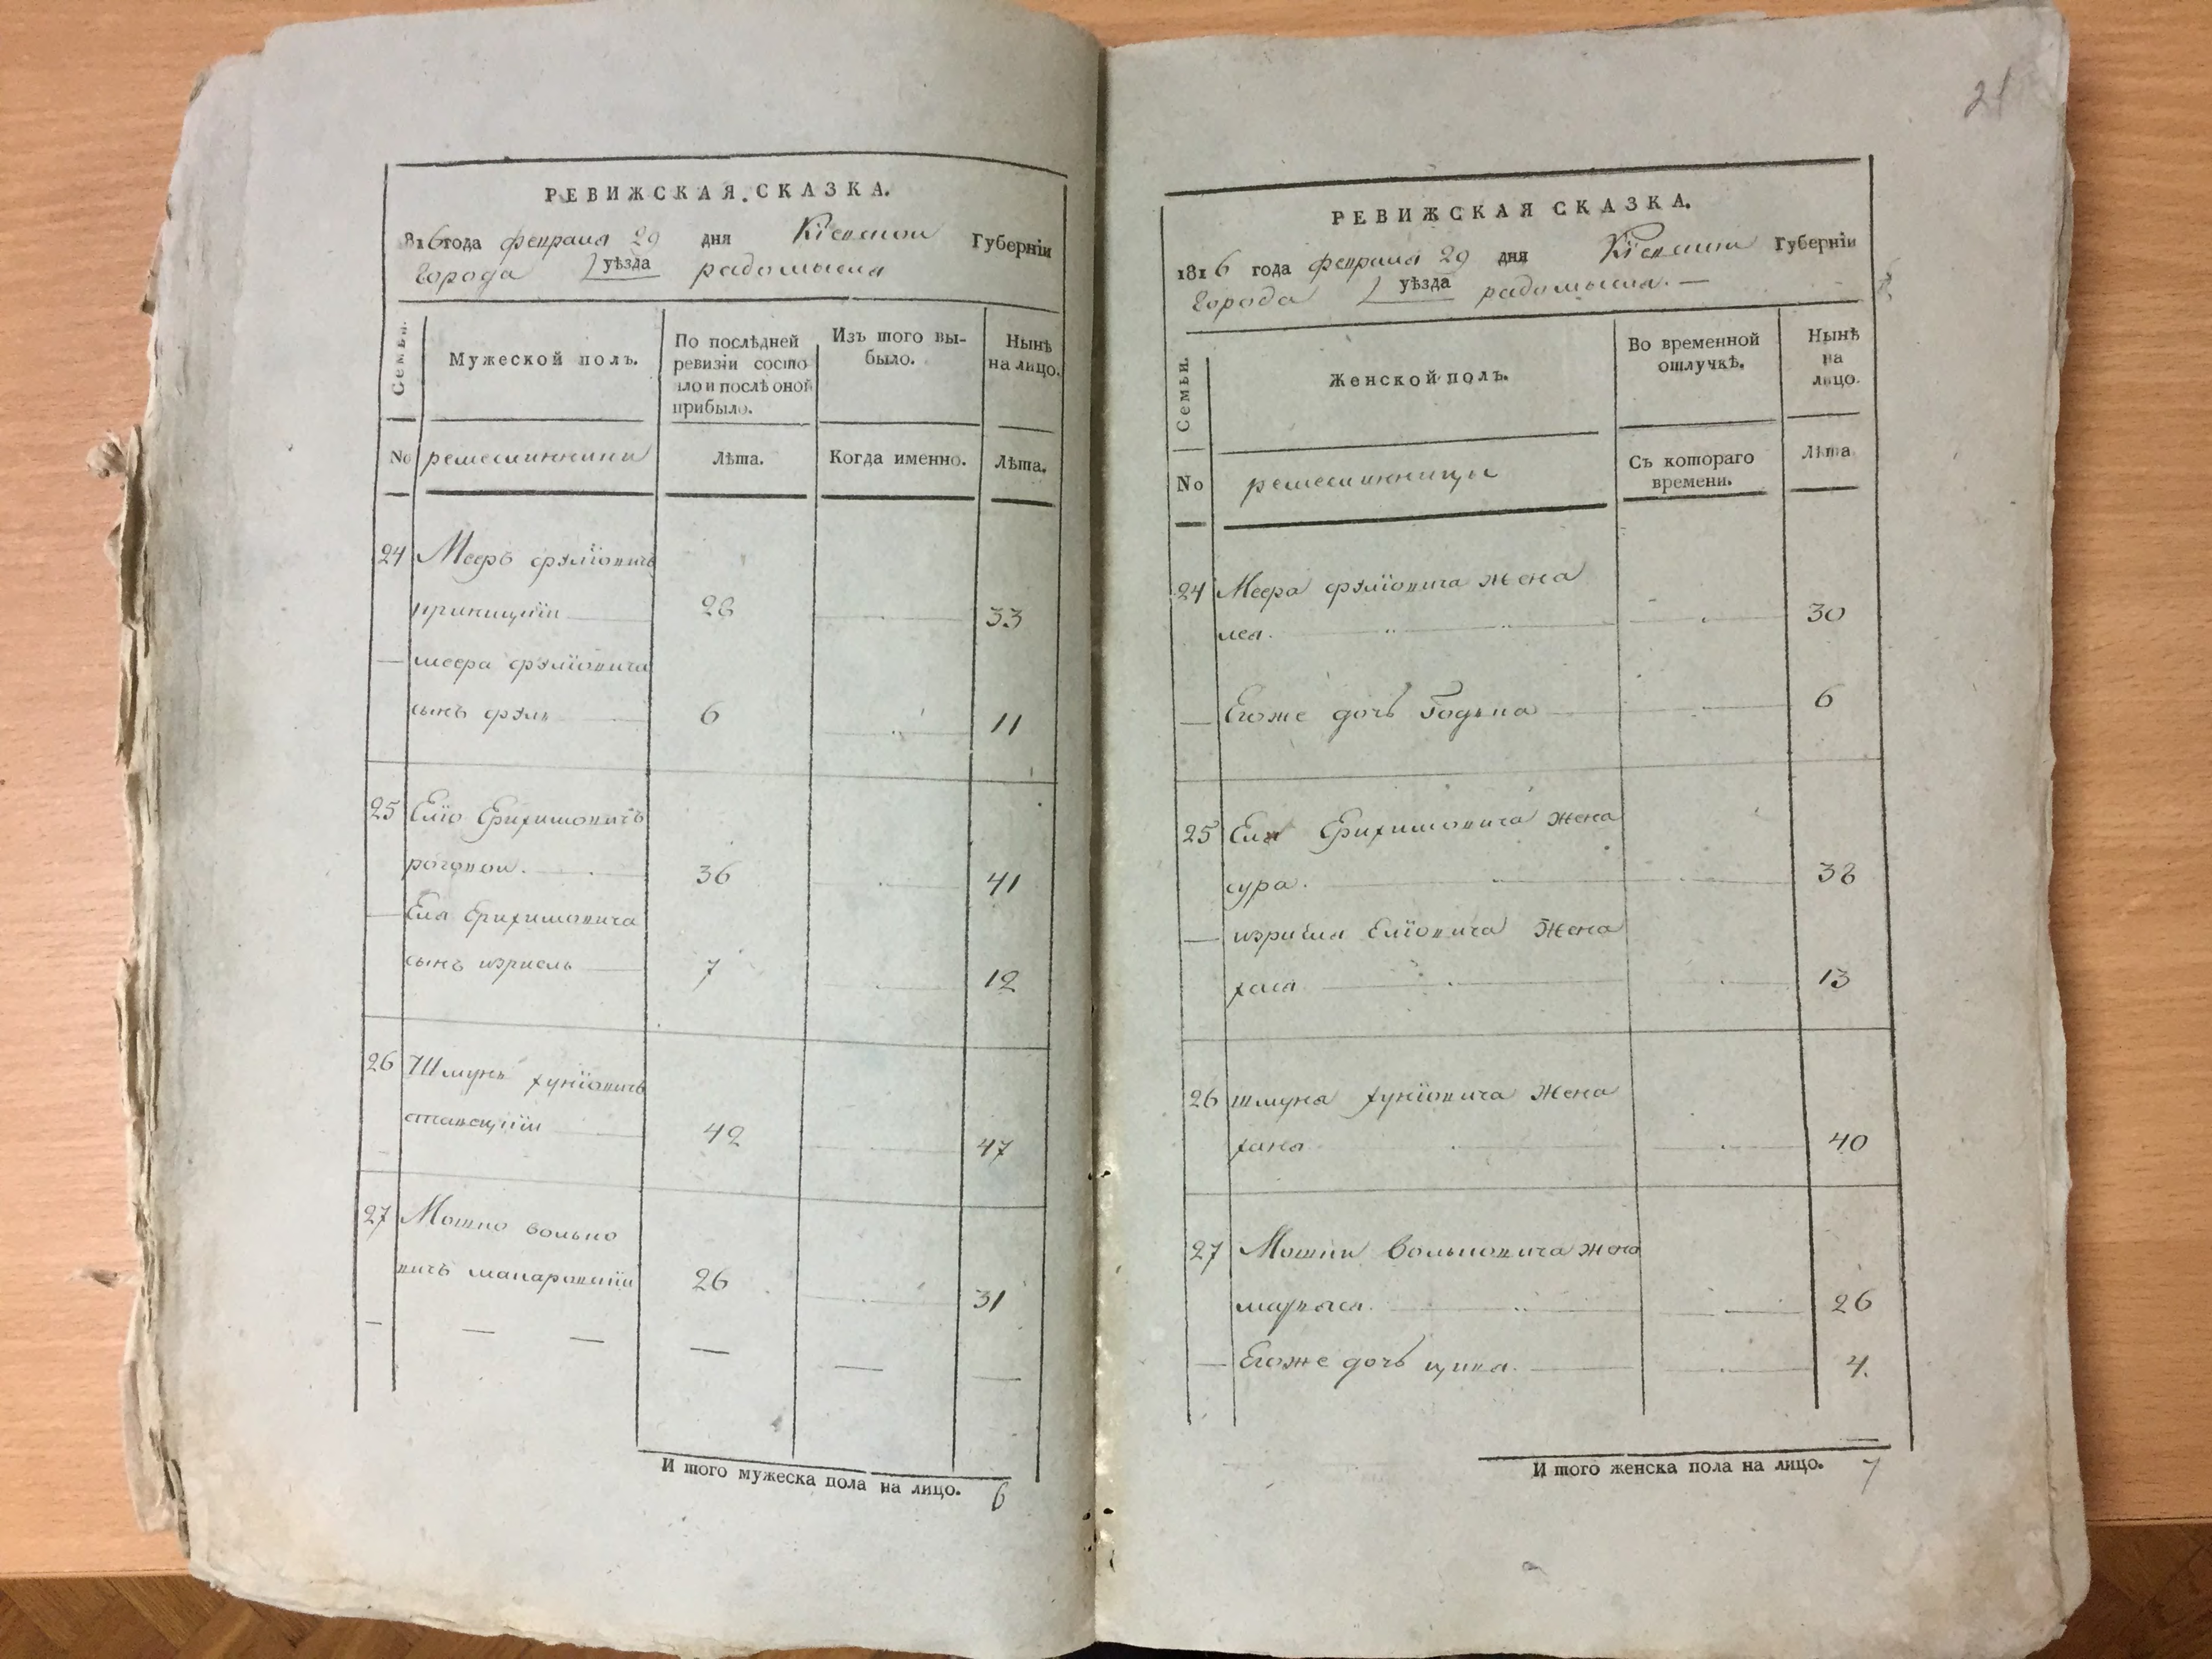 РЕВИЖСКАЯ СКАЗКА.
816 года февраля 29 дня Кіевской Губерніи
Города уѣзда радомысля
Семьи.
Мужеской полъ.
По послѣдней ревизіи состояло и послѣ оной прибыло.
Изъ того выбыло.
Нынѣ на лицо.
No ремеслинники
Лѣта.
Когда именно.
Лѣта.
24 Мееръ
28 33
меера
сынъ 6 11
25 Еліо
36 41
Еля
сынъ изриель 7 12
26 Шмунь хуніовичъ
ставецкіи 42 47
27 Мошко волько
вичъ макаровскіи 26 31
И того мужеска пола на лицо. 6
21
РЕВИЖСКАЯ СКАЗКА.
1816 года февраля 29 дня Кіевской Губерніи
Города уѣзда радомысля.
Семьи.
Женской полъ.
Во временной отлучкѣ.
Нынѣ на лицо.
No ремеслинницы
Съ котораго времени.
Лѣта
24 Меера жена
лея. 30
Егоже дочь 6
25 Еля жена
сура. 38
изриеля Еліовича жена
хая 13
26 шмуня хуніовича жена
хана 40
27 Мошки вольковича жена
26
Егоже дочь ципа. 4.
И того женска пола на лицо. 7